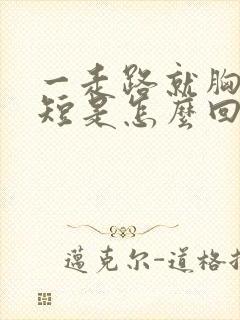 一走路就胸
短是怎麼回
邁克尔-道格拉